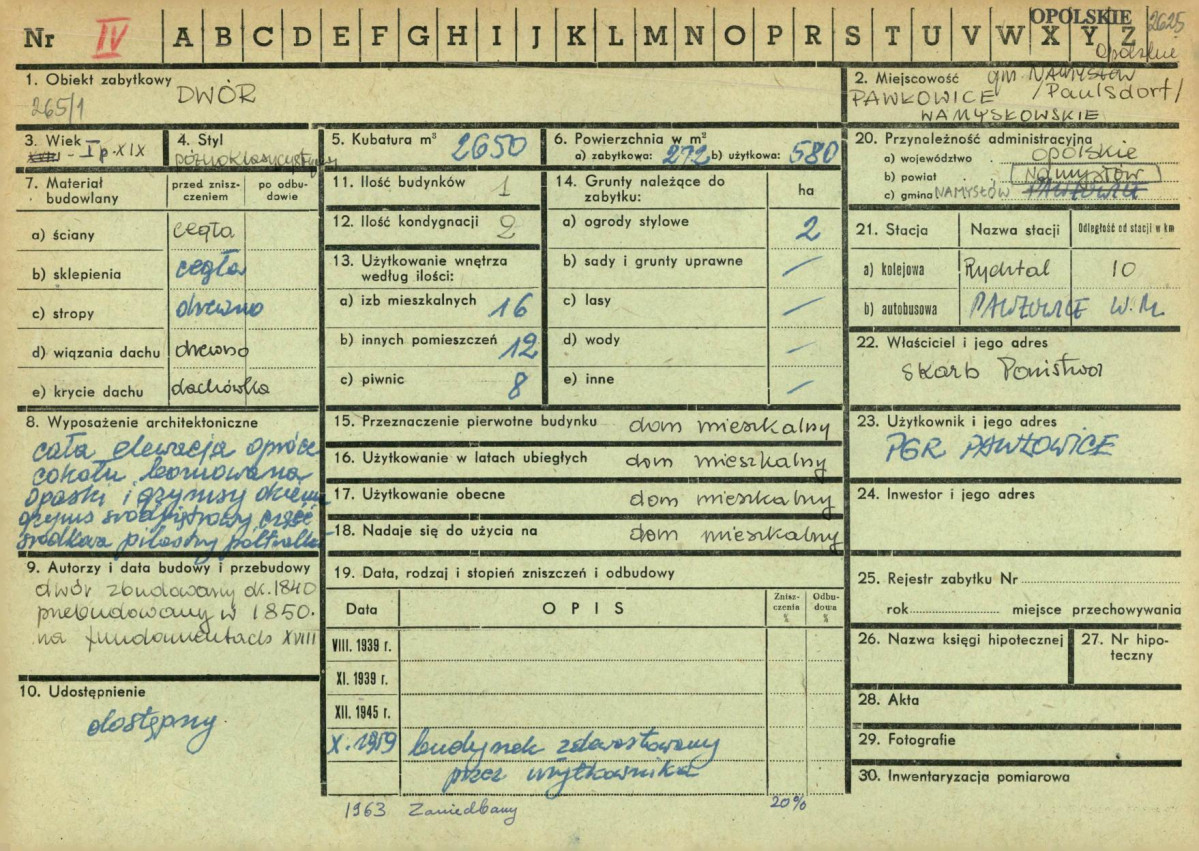 Nr IV A B C D E F G H I J K L M N O P R S T U V W X Y Z OPOLSKIE 2625
opolskie
1. Obiekt zabytkowy
265/1
DWÓR
2. Miejscowość gm. NAMYSŁÓW
PAWŁOWICE /Paulsdorf/
NAMYSŁOWSKIE
3. Wiek
I p. XIX
4. Styl
późnoklasycystyczny
5. Kubatura m³ 2650
6. Powierzchnia w m²
a) zabytkowa: 272 b) użytkowa: 580
20. Przynależność administracyjna
a) województwo opolskie
b) powiat Namysłów
c) gmina NAMYSŁÓW PAWŁOWICE
7. Materiał budowlany
przed zniszczeniem
po odbudowie
a) ściany cegła
b) sklepienia cegła
c) stropy drewno
d) wiązania dachu drewno
e) krycie dachu dachówka
11. Ilość budynków 1
12. Ilość kondygnacji 2
13. Użytkowanie wnętrza
według ilości:
a) izb mieszkalnych 16
b) innych pomieszczeń 12
c) piwnic 8
14. Grunty należące do
zabytku:
ha
a) ogrody stylowe 2
b) sady i grunty uprawne /
c) lasy /
d) wody /
e) inne /
21. Stacja
Nazwa stacji
Odległość od stacji w km
a) kolejowa Rychtal 10
b) autobusowa PAWŁOWICE W.M.
22. Właściciel i jego adres
Skarb Państwa
8. Wyposażenie architektoniczne
cała elewacja oprócz
cokołu boniowana
opaski i gzymsy okienne
gzyms śródpiętrowy część
środkowa pilastry półwalka
15. Przeznaczenie pierwotne budynku dom mieszkalny
16. Użytkowanie w latach ubiegłych dom mieszkalny
17. Użytkowanie obecne dom mieszkalny
18. Nadaje się do użycia na dom mieszkalny
23. Użytkownik i jego adres
PGR PAWŁOWICE
24. Inwestor i jego adres
9. Autorzy i data budowy i przebudowy
dwór zbudowany ok. 1840
przebudowany w 1850.
na fundamentach XVIII
10. Udostępnienie
dostępny.
19. Data, rodzaj i stopień zniszczeń i odbudowy
Data
OPIS
Zniszczenia %
Odbudowa %
VIII. 1939 r.
XI. 1939 r.
XII. 1945 r.
X. 1959 budynek zdewastowany
przez użytkownika
1963 Zaniedbany 20%
25. Rejestr zabytku Nr
rok miejsce przechowywania
26. Nazwa księgi hipotecznej
27. Nr hipoteczny
28. Akta
29. Fotografie
30. Inwentaryzacja pomiarowa